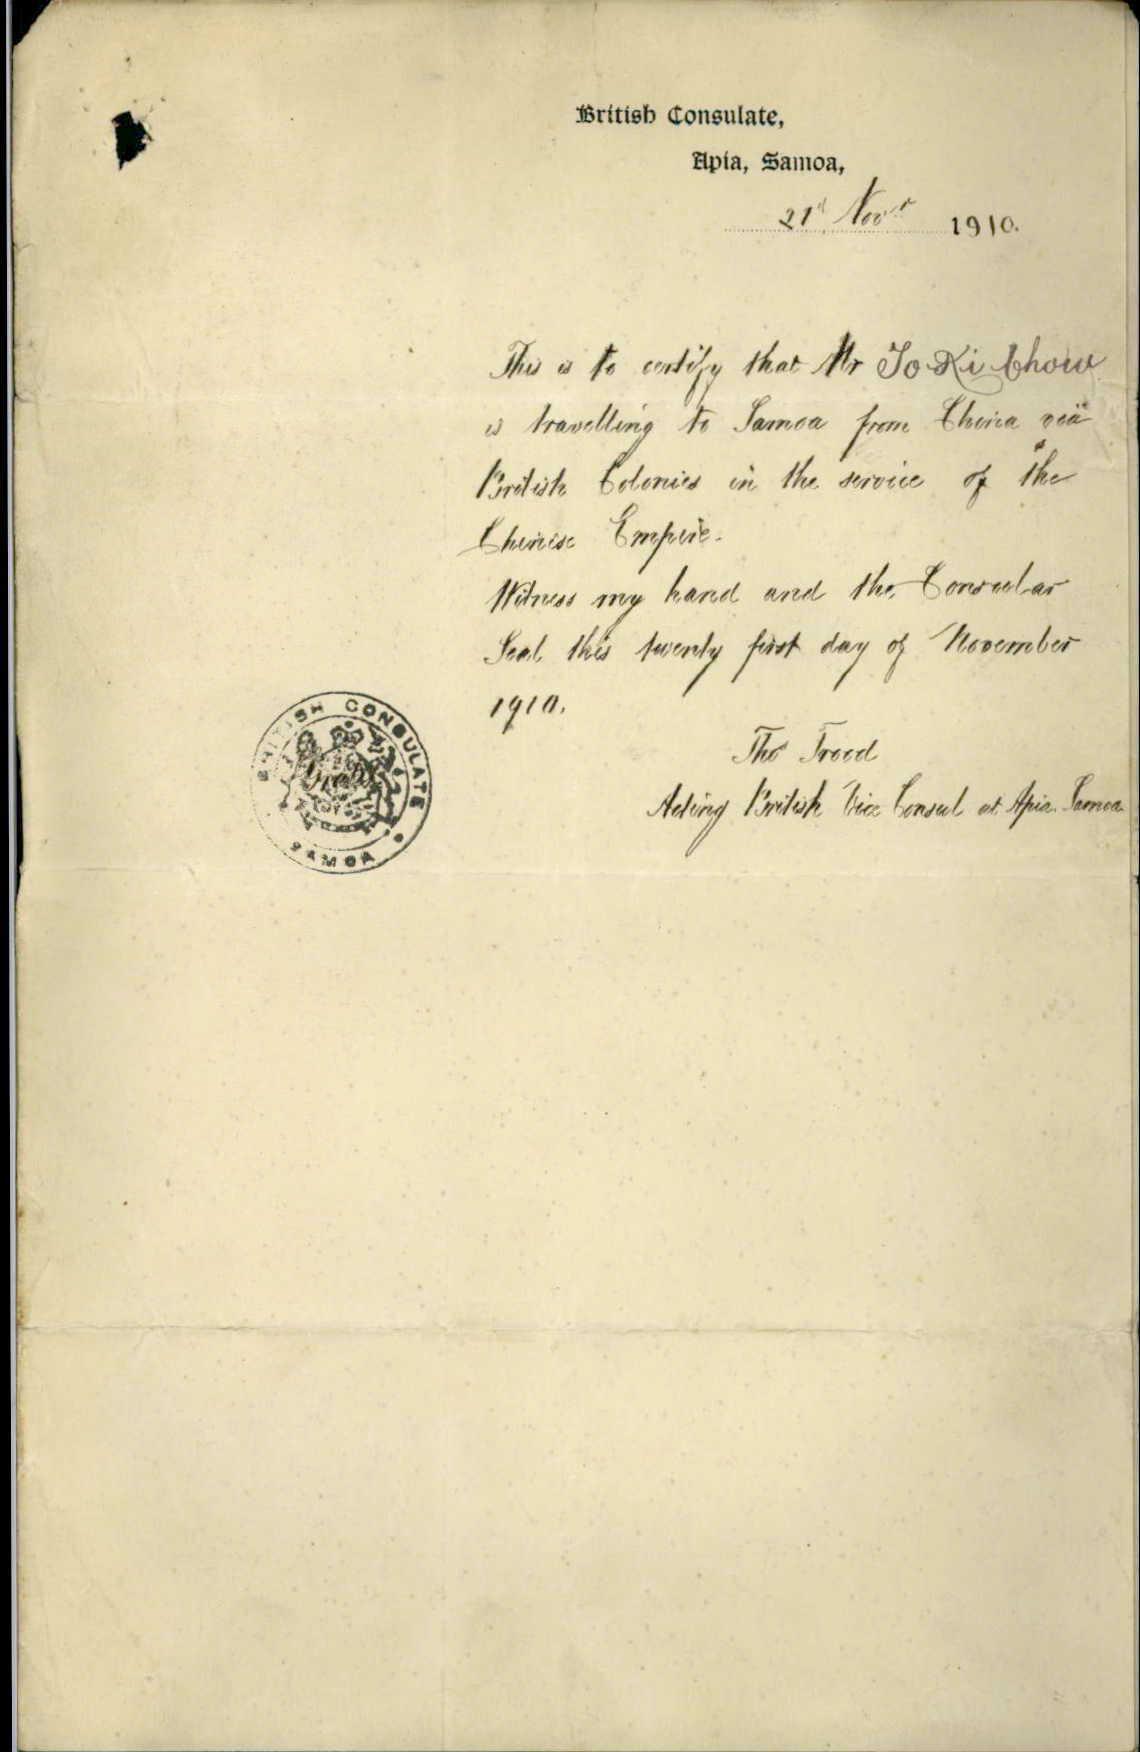 British Consulate,
Apia, Samoa,
21st Novr 1910.
This is to certify that Mr To Ki Chow
is travelling to Samoa from China via
British Colonies in the service of the
Chinese Empire.
Witness my hand and the Consular
Seal this twenty first day of November
1910.
Thos Trood
Acting British Vice Consul at Apia Samoa
BRITISH CONSULATE
Gratis
SAMOA